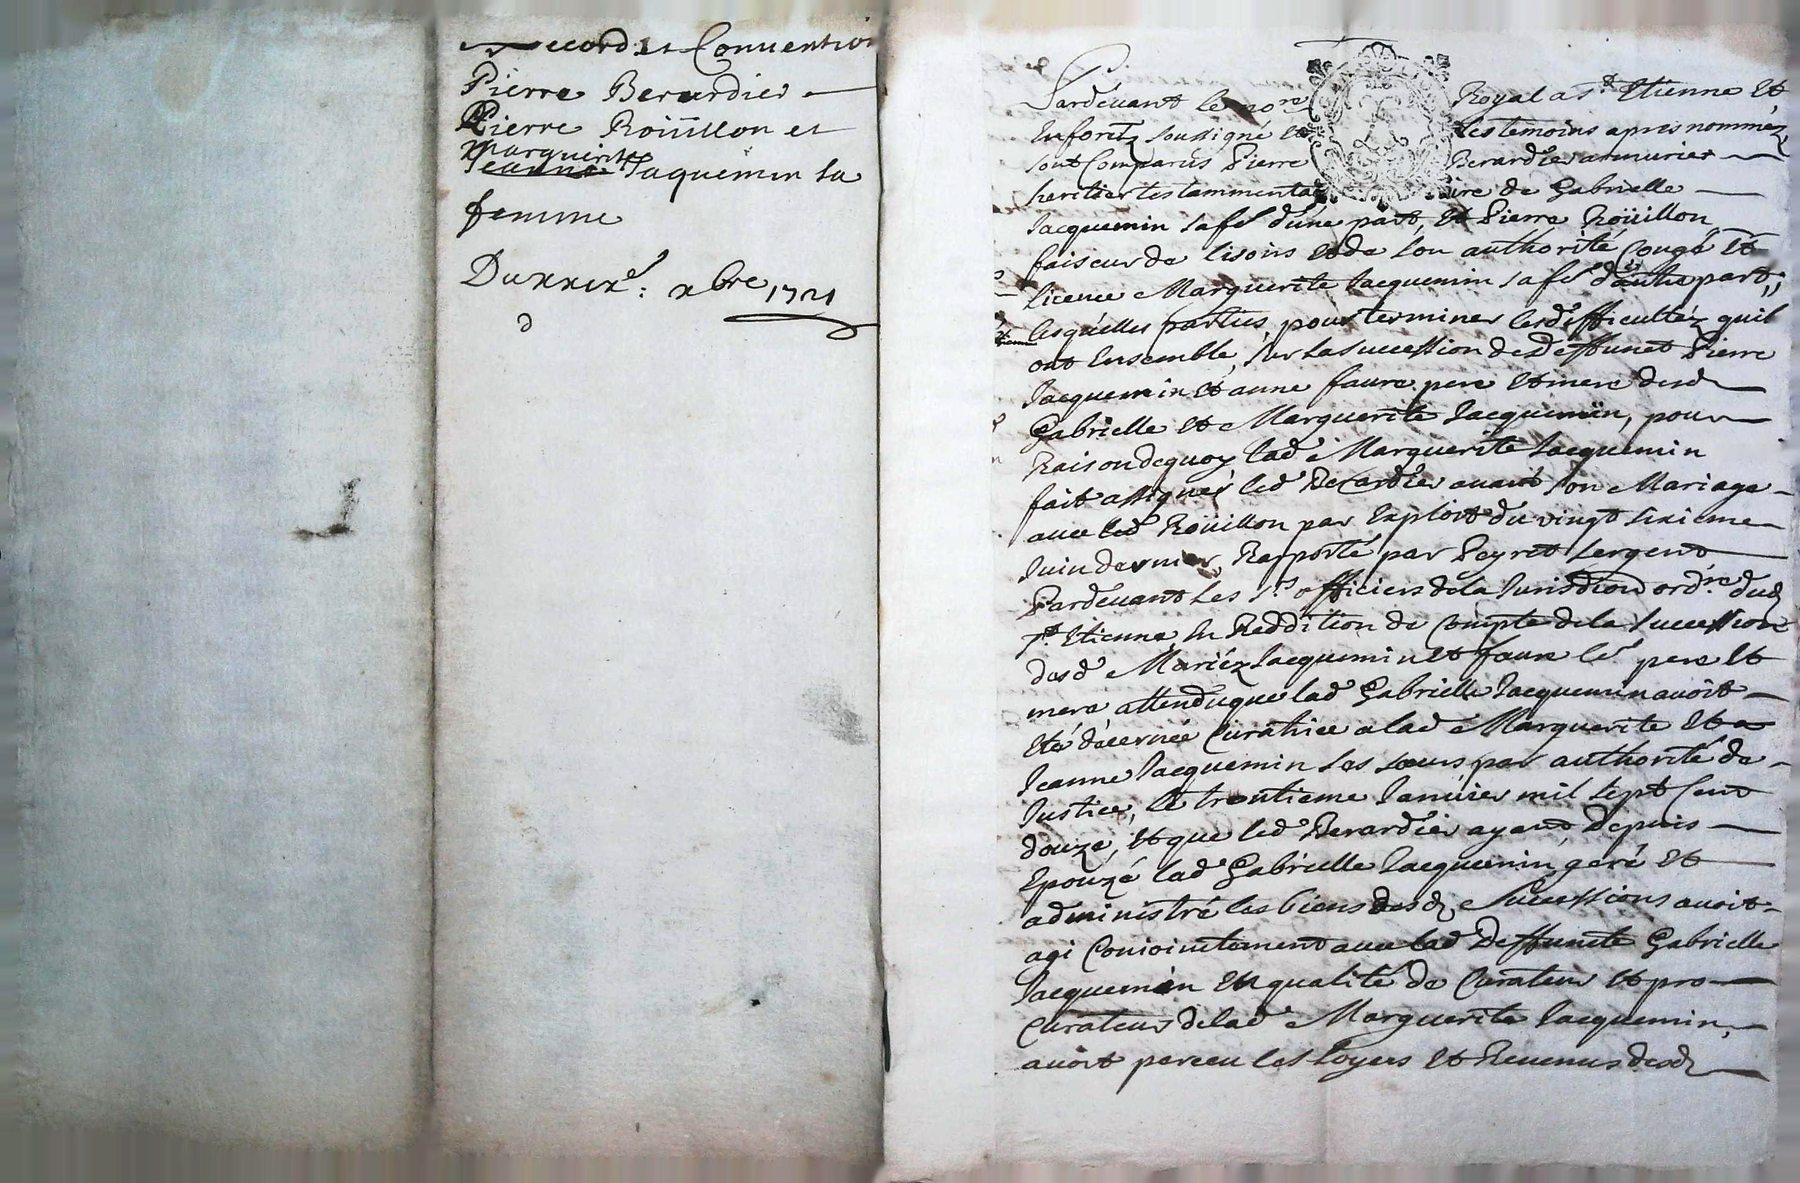 accord et Convention
Pierre Berardier
Pierre Roüillon et
marguerite
Jeanne Jaquemin sa
femme
Du xxix.e : xbre 1721
Pardeuant le nore Royal a St Etienne Et
En forez soussigné Et les temoins apres nommez
sont Comparus Pierre Berardier armurier
heritier testammentaire de Gabrielle
Jacquemin sa fe d'une part, Et Pierre Roüillon
faiseur de lisoirs Et de son authorité Congé Et
licence Marguerite Jacquemin sa fe d'autre part,
lesquelles parties, pour terminer les difficultéz quil
ont Ensemble, sur la succession de Deffunct Pierre
Etienne
Jacquemin Et anne faure pere Et mere desd
Gabrielle Et Marguerite Jacquemin, pour
Raison dequoy lade Marguerite Jacquemin
fait assigner led Berardier auant son Mariage
auec led Roüillon par Exploit du vingt sixieme
Juin dernier, Rapporté par Peyret sergent
Pardeuant les srs officiers de la Jurisdion ordre dud
St Etienne En Reddition de Compte de la succession
desd Mariéz Jacquemin Et faure les pere Et
mere attendu que lad Gabrielle Jacquemin auoit
Eté décernée Curatrice a lad Marguerite Et a
Jeanne Jacquemin ses sœurs par authorité de
Justice, le trentieme Januier mil sept Cent
douze, Et que led Berardier ayant Depuis
Epouzé lad Gabrielle Jacquemin, geré Et
administré les biens desd Successions auoit
agi Conjointement auec lad Deffuncte Gabrielle
Jacquemin En qualité de Curateur Et pro
Curateur de lad Marguerite Jacquemin,
auoit perceu les loyers Et Reuenus desd